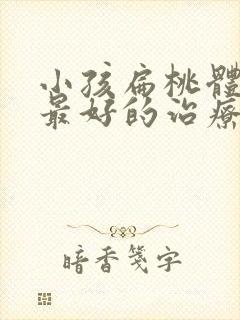 小孩扁桃體
最好的治療
暗香箋字